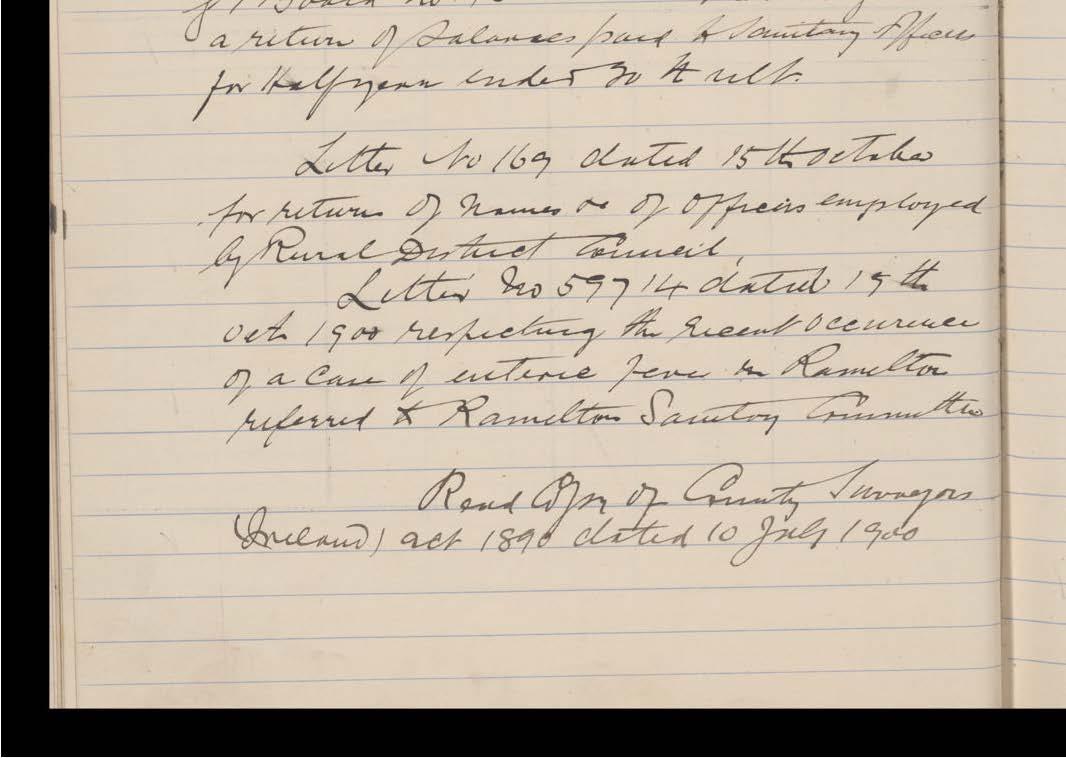 Board No
a return of Salaries paid to Sanitary Officers
for Half year ended 30th ult.
Letter No 169 dated 15th October
for return of Names &c of Officers employed
by Rural District Council,
Letter No 59714 dated 19th
Oct 1900 respecting the recent occurrence
of a case of enteric fever in Ramelton
referred to Ramelton Sanitary Committee
Read Copy of County Surveyors
(Ireland) act 1890 dated 10 July 1900